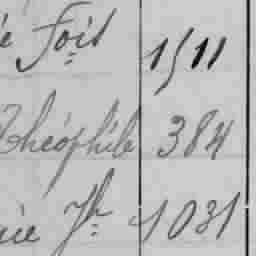 e Fois 1511
Théophile 384
aie Jh 1031